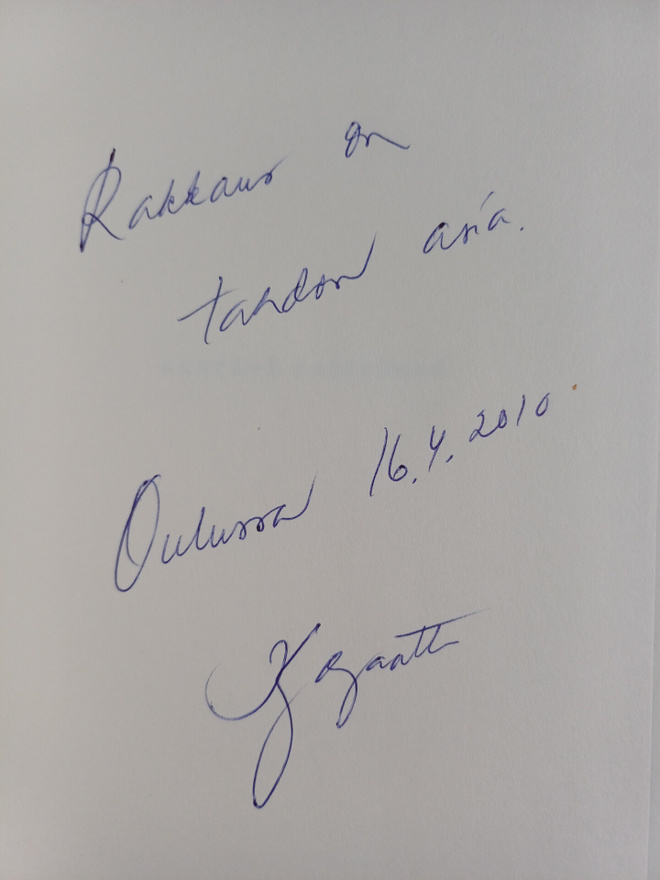 Rakkaus on
tahdon asia.
Oulussa 16.4.2010